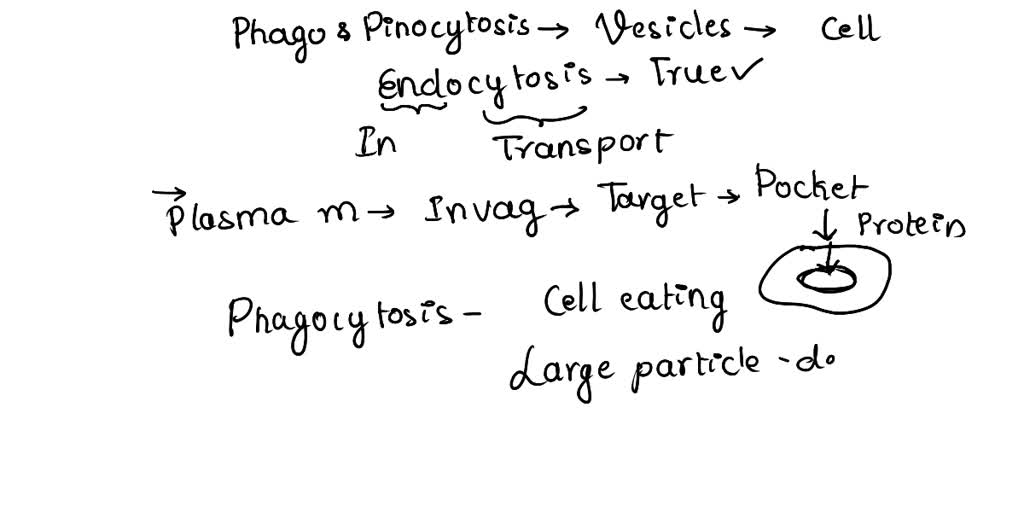 Phago & Pinocytosis → Vesicles → Cell
Endocytosis → True✓
In Transport
Plasma m → Invag → Target → Pocket
Protein
Phagocytosis - Cell eating
Large particle - do